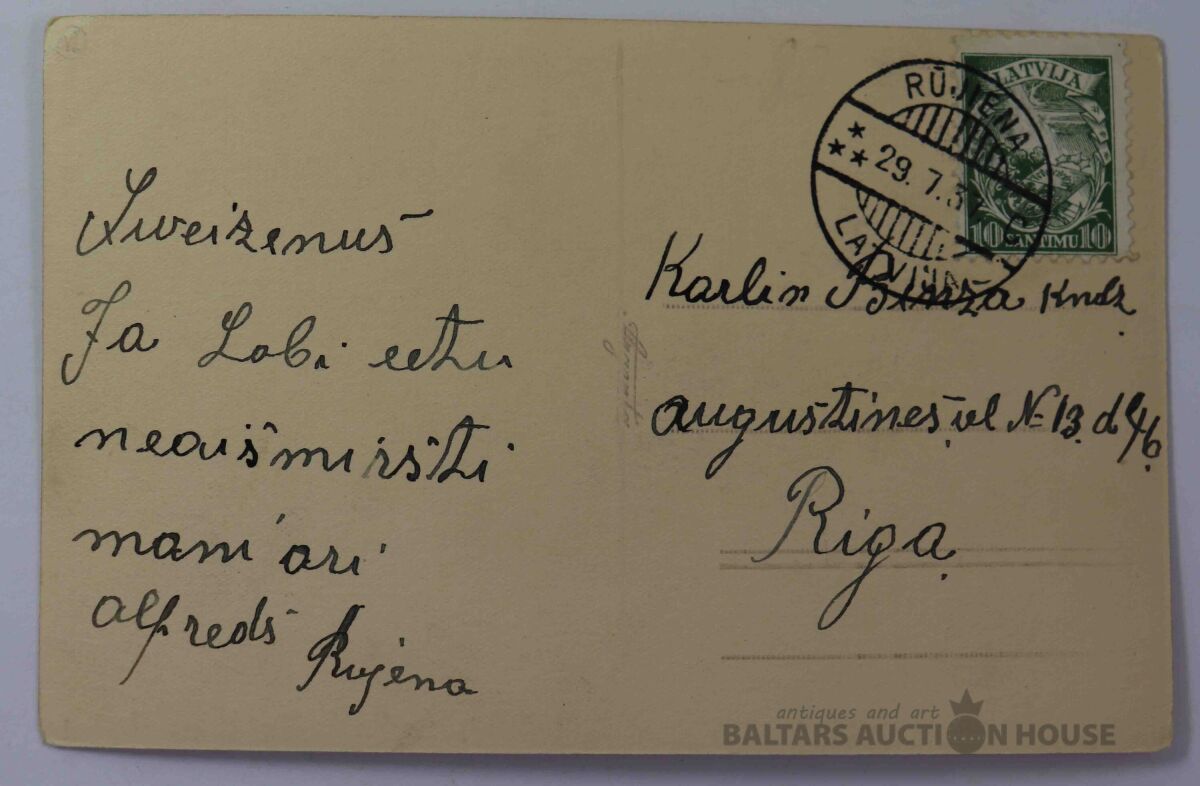 Sweizenuš
Ja Lobi eetu
neaišmiršti
mani ari
Alfredš
Rujena
RŪJIENA
29. 7. 37. C
LATVIJA
LATVIJA
10 SANTIMU 10
Karlin Binža Kndz
augustines, ul N-13. d 4/6
Riga
antiques and art
BALTARS AUCTION HOUSE